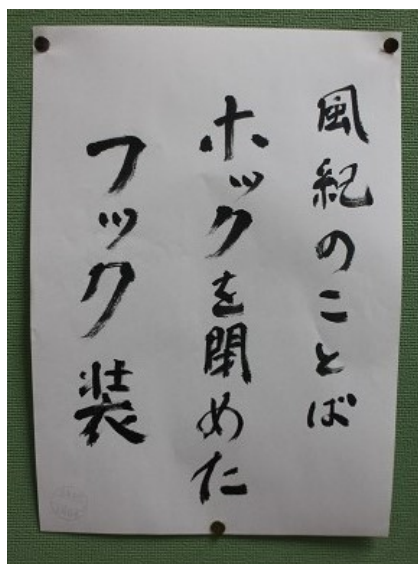 風紀のことば
ホックを閉めた
フック装